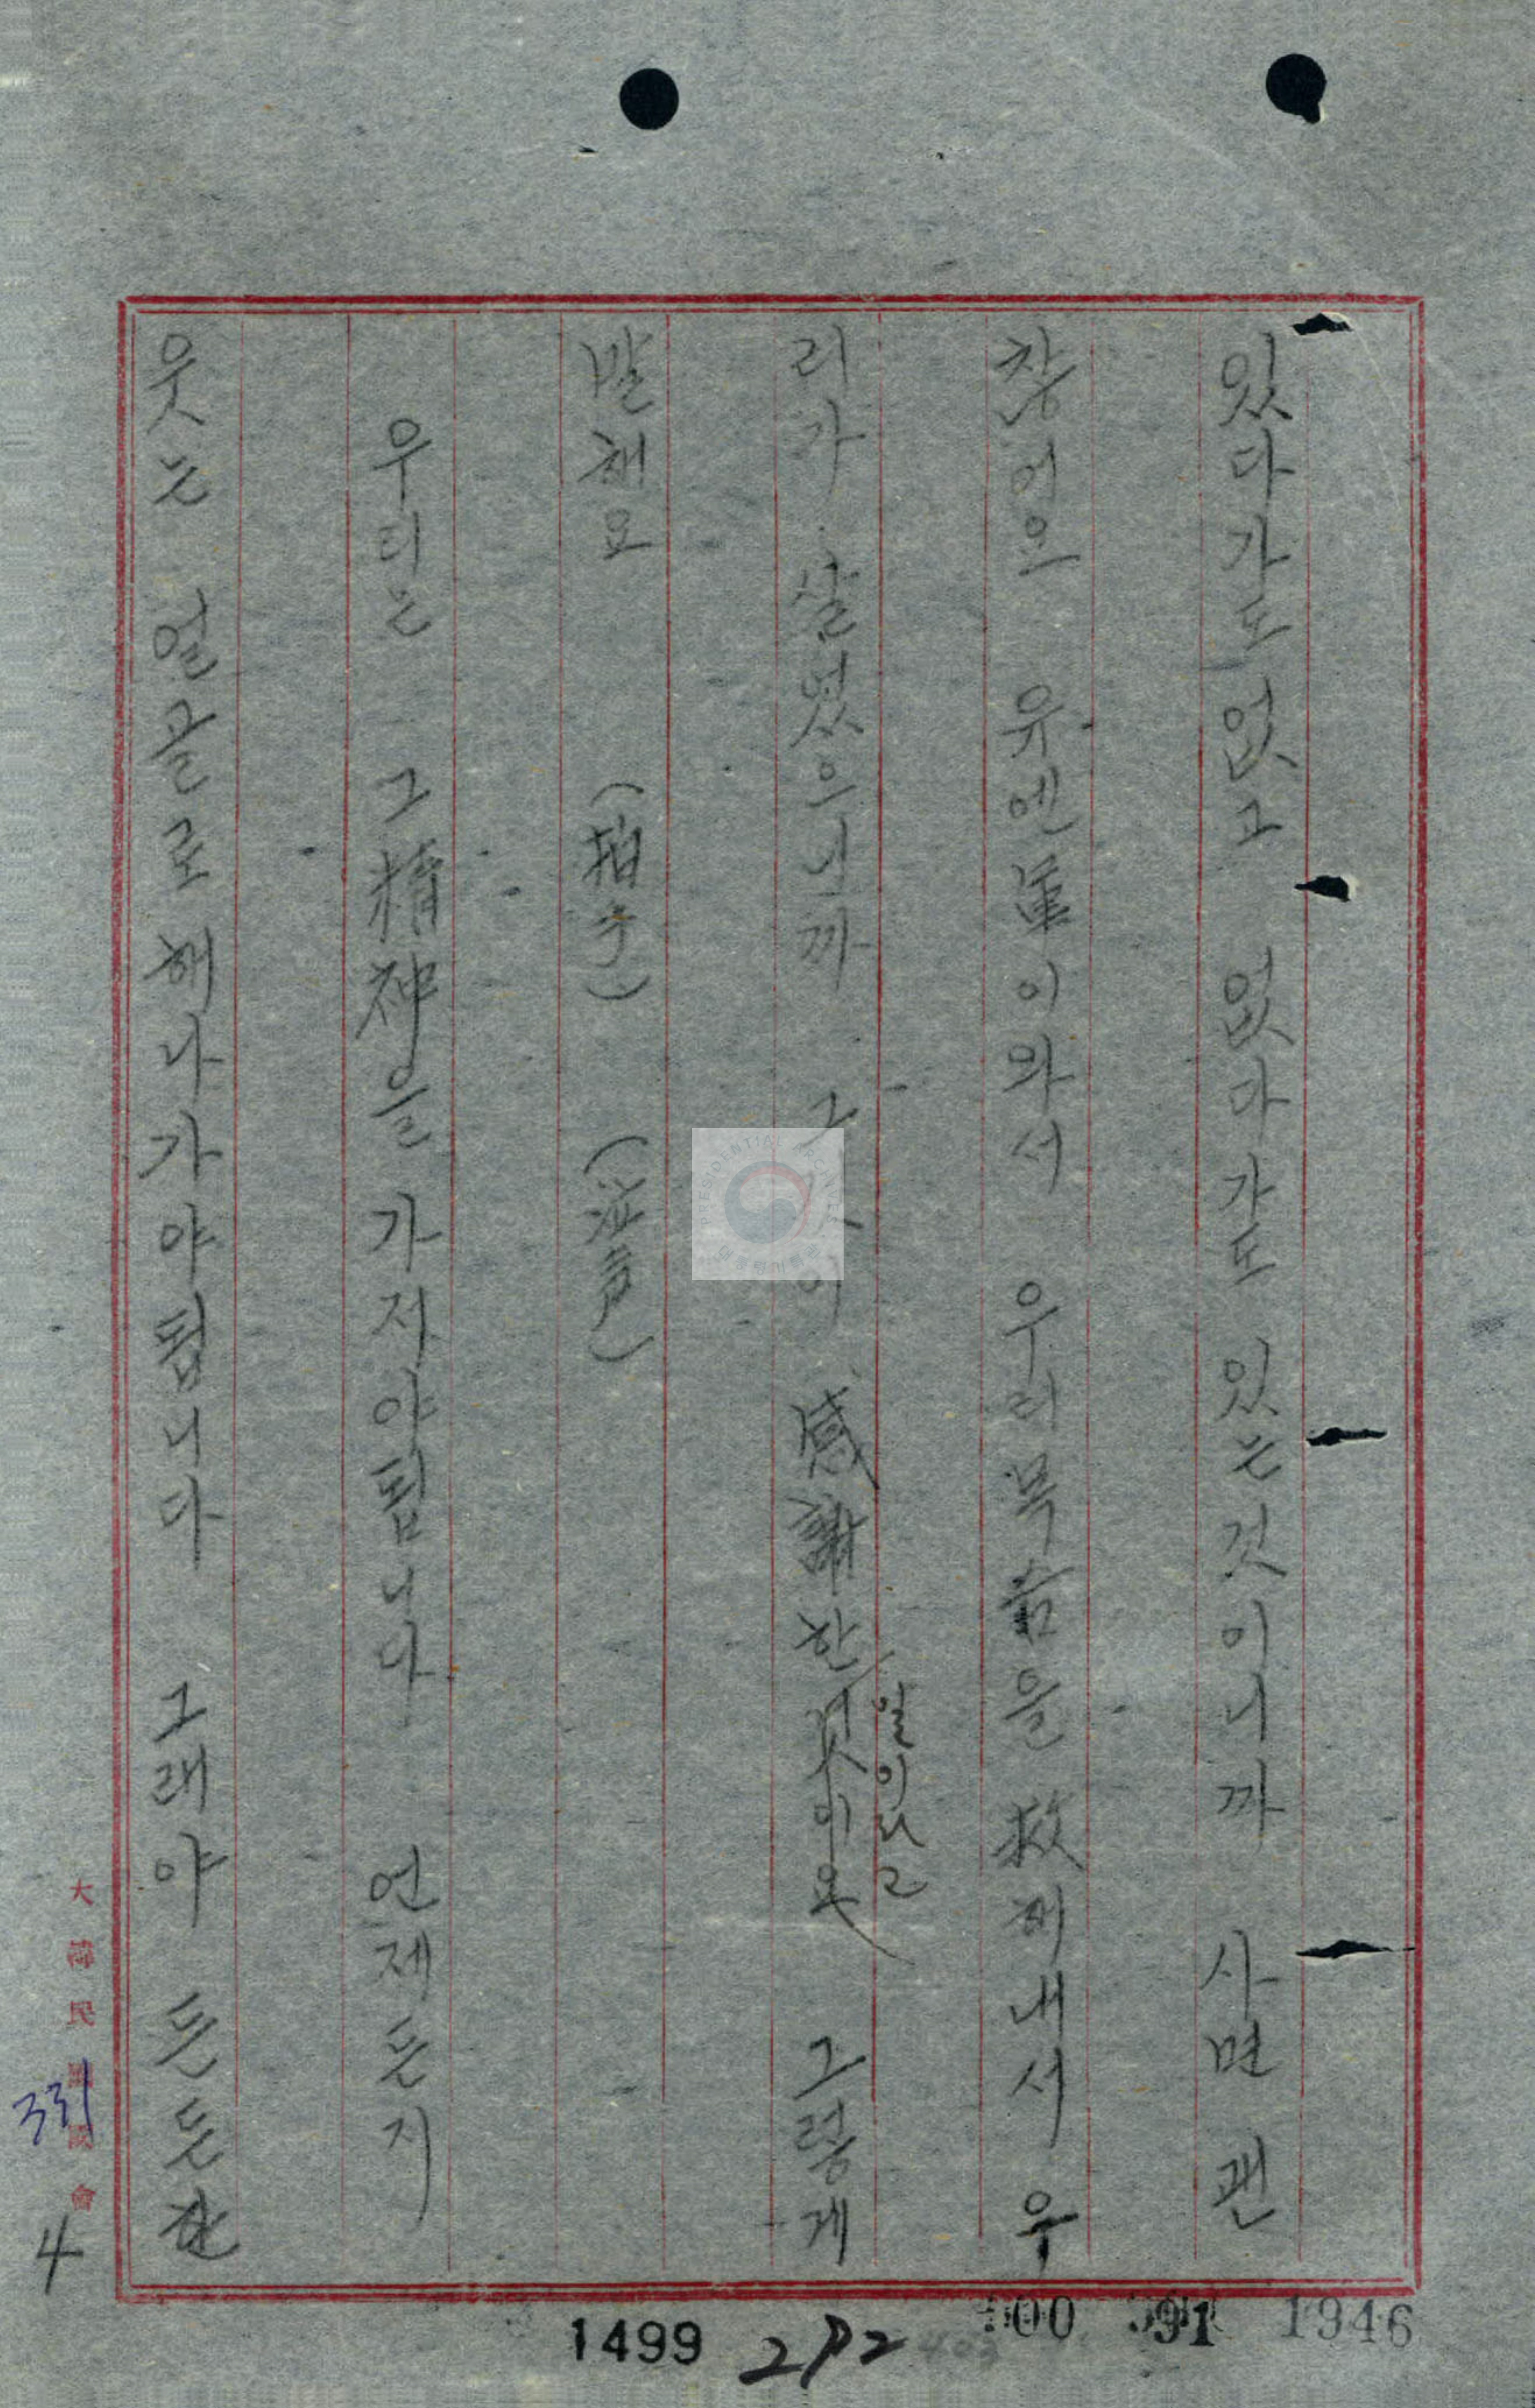 있다가도 없고 없다가도 있는것이니까 사면 괜
찮어요 유엔軍이와서 우리목숨을 救해내서 우
리가 살었으니까 그것이 感謝한것이요 그렇게
일이라고
말해요 (拍手) (泣声)
우리는 그精神을 가저야됩니다 언제든지
웃는 얼굴로 해나가야됩니다 그래야 든든한
大韓民國國會
331
4
1499
272
91
1946